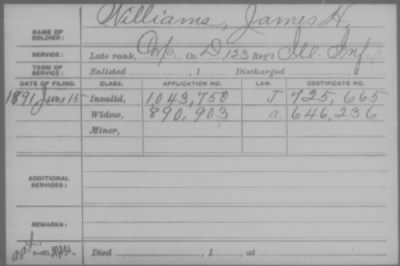 NAME OF SOLDIER: Williams, James H.
SERVICE: Late rank, Corp. Co. D 123 Reg't Ill. Inf.
TERM OF SERVICE: Enlisted , 1 Discharged
DATE OF FILING. CLASS. APPLICATION NO. LAW. CERTIFICATE NO.
1891 June 15 Invalid, 1043,750 J 725,665
Widow, 890,903 a. 646,236
Minor,
ADDITIONAL SERVICES:
REMARKS:
Died , 1 , at